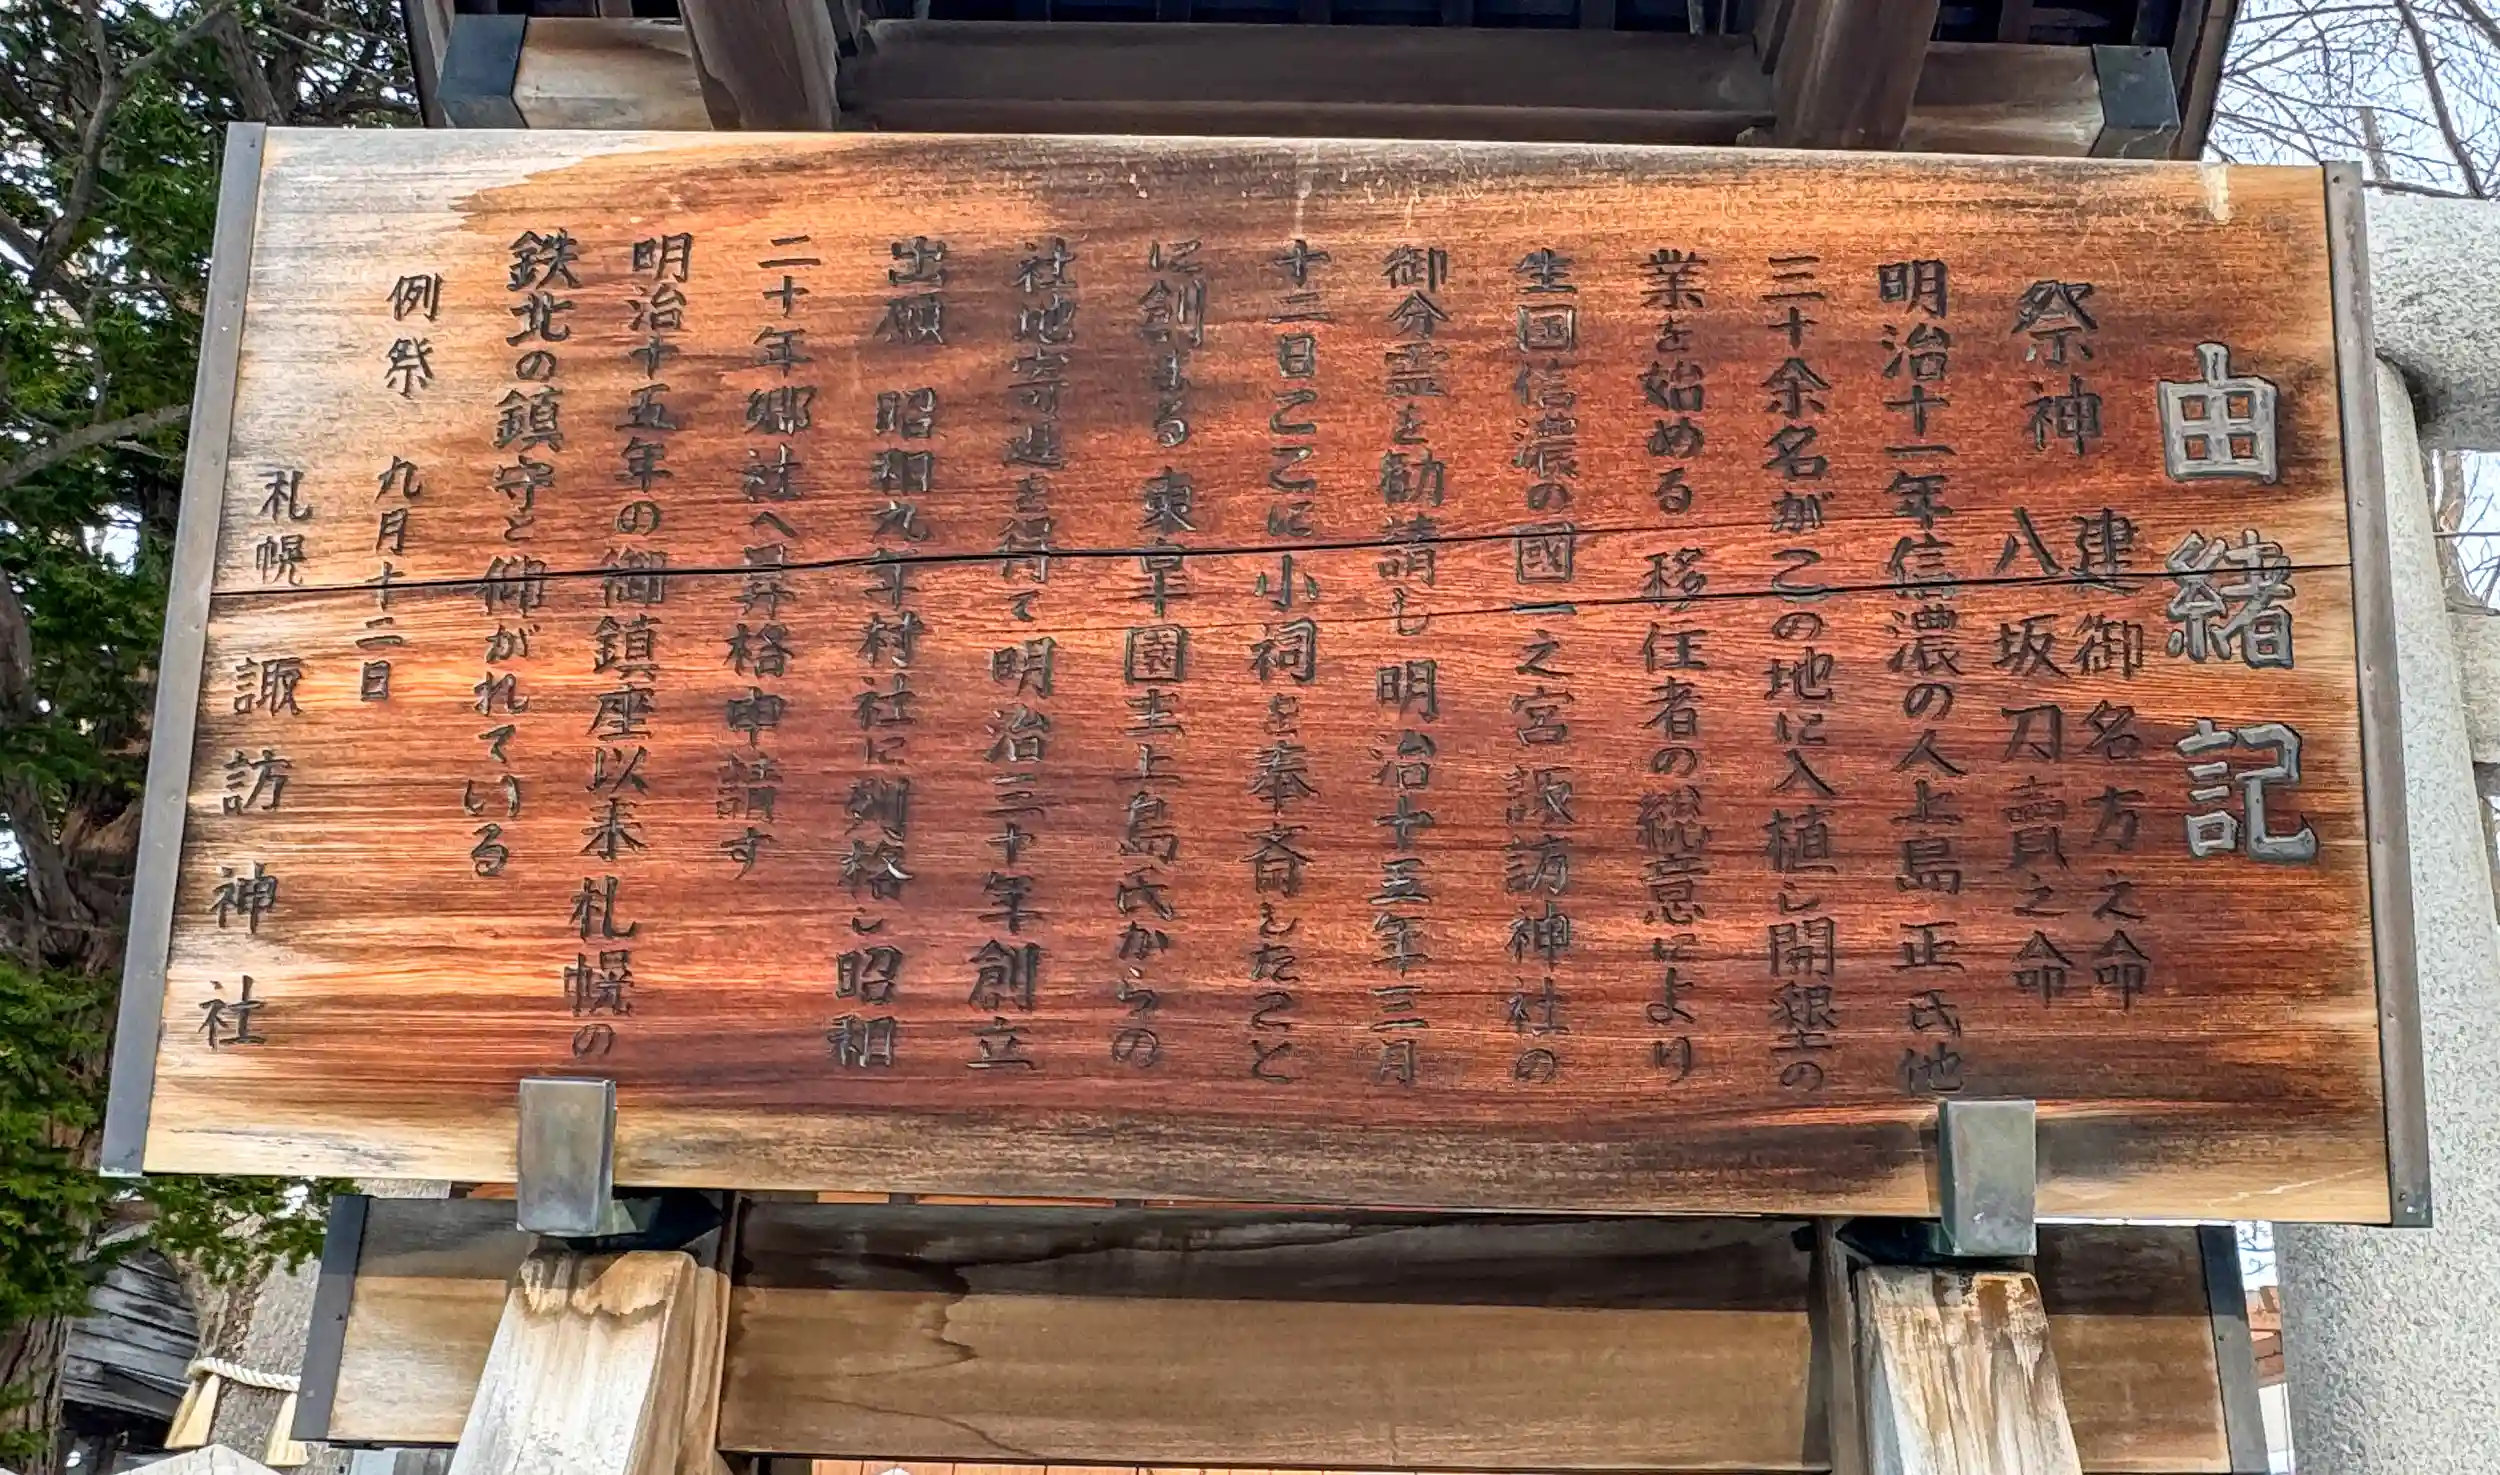 由緒記
祭神 建御名方之命
八坂刀賣之命
明治十一年信濃の人上島正氏他
三十余名がこの地に入植し開墾の
業を始める 移住者の総意により
生国信濃の國一之宮諏訪神社の
御分霊を勧請し明治十五年三月
十二日ここに小祠を奉斎したこと
に創まる 東皐園主上島氏からの
社地寄進を得て明治三十年創立
出願 昭和九年村社に列格し昭和
二十年郷社へ昇格申請す
明治十五年の御鎮座以来札幌の
鉄北の鎮守と仰がれている
例祭 九月十二日
札幌 諏訪神社